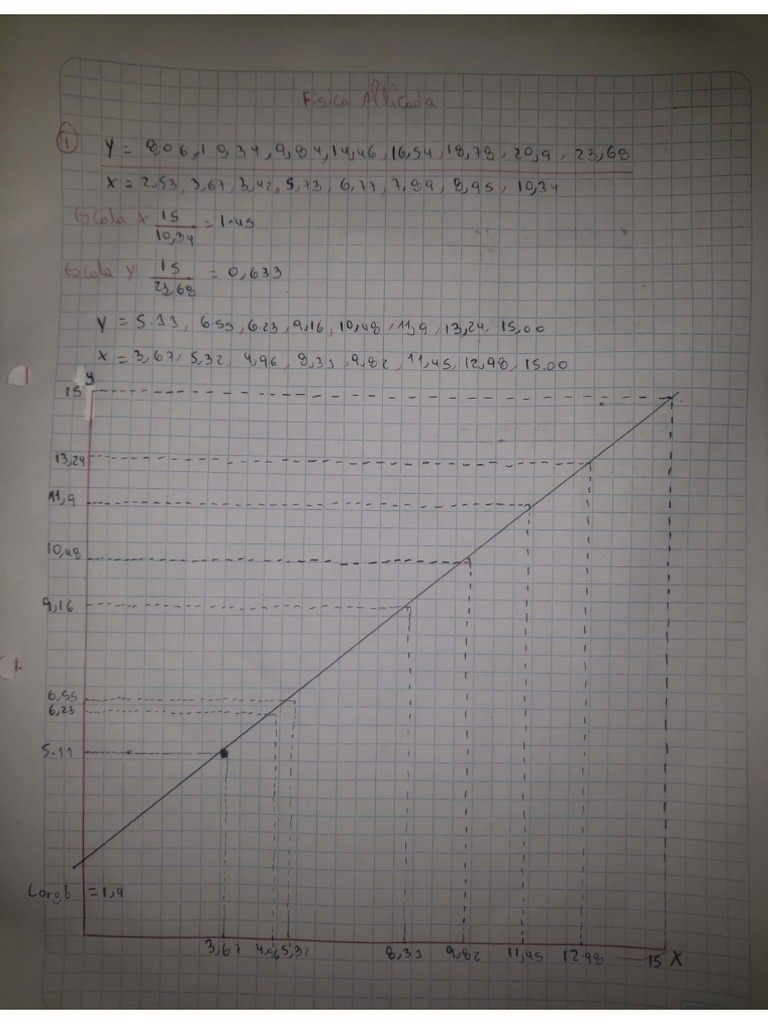 Fisica Aplicada
1
Y = 8,06, 10,34, 9,84, 14,46, 16,54, 18,78, 20,9, 23,68
X = 2,53, 3,67, 3,42, 5,73, 6,77, 7,89, 8,95, 10,34
Escala X 15/10,34 = 1.45
Escala Y 15/23,68 = 0,633
Y = 5.11, 6.55, 6.23, 9,16, 10,48, 11,9, 13,24, 15,00
X = 3,67, 5,32, 4,96, 8,31, 9,82, 11,45, 12,98, 15.00
Y
15
13,24
11,9
10,48
9,16
6,55
6,23
5.11
Lorgb = 1,9
3,67 4,96 5,32 8,31 9,82 11,45 12.98 15 X